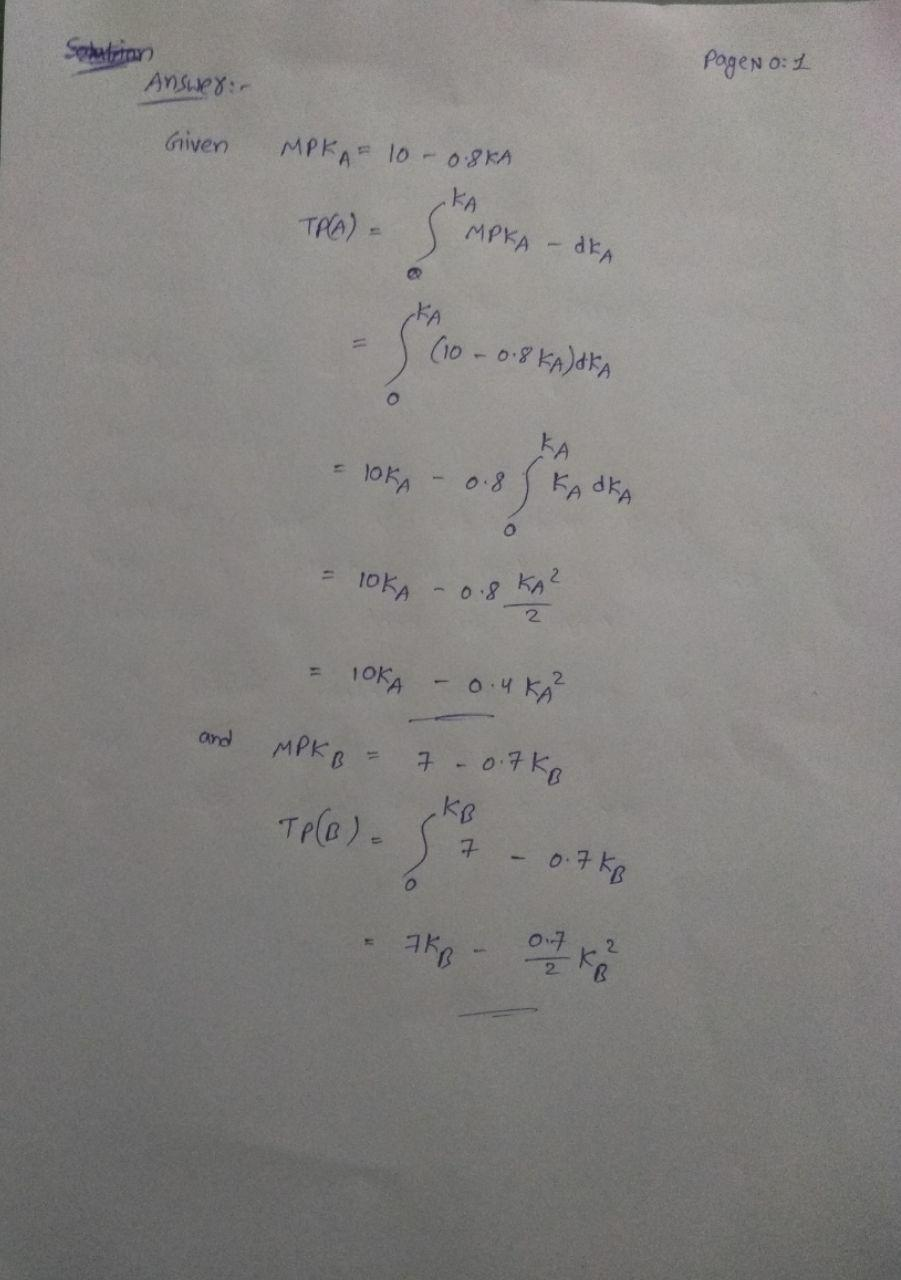 Solution
Page No: 1
Answer:-
Given MPK_A = 10 - 0.8KA
TP(A) = ∫_0^KA MPKA - dK_A
= ∫_0^KA (10 - 0.8 K_A)dK_A
= 10K_A - 0.8 ∫_0^KA K_A dK_A
= 10K_A - 0.8 K_A²/2
= 10K_A - 0.4 K_A²
and MPK_B = 7 - 0.7K_B
TP(B) = ∫_0^KB 7 - 0.7K_B
= 7K_B - 0.7/2 K_B²